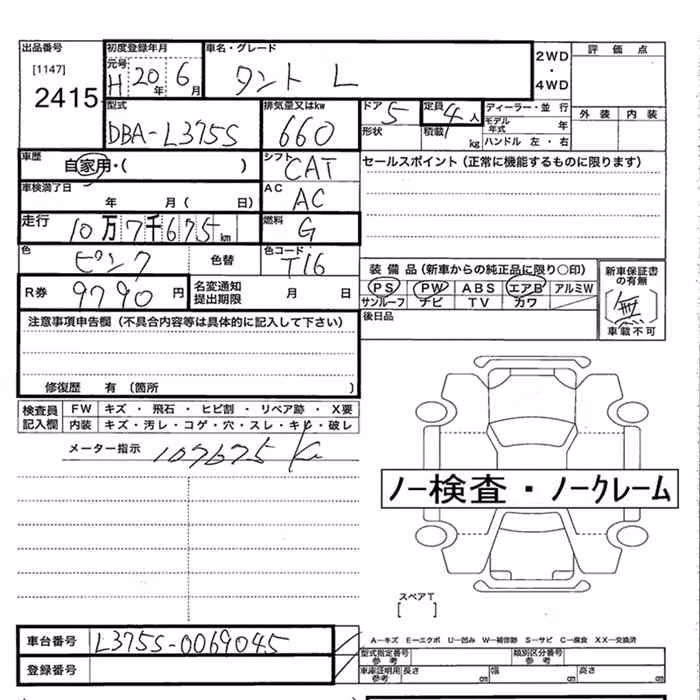 出品番号 初度登録年月 車名・グレード 2WD ・ 4WD 評価点
[1147] 元号 H 20年 6月 タント L
2415
型式 排気量又はkw ドア 5 定員 4人 ディーラー・並行 外装 内装
DBA-L375S 660 形状 積載 kg モデル年式 年
ハンドル 左・右
車歴 自家用・( ) シフト CAT セールスポイント(正常に機能するものに限ります)
車検満了日 年 月( 日) AC AC
走行 10万7千675km 燃料 G
色 ピンク 色替 色コード T16 装備品(新車からの純正品に限り○印) 新車保証書の有無
PS PW ABS エアB アルミW 無
R券 9790円 名変通知提出期限 月 日 サンルーフ ナビ TV カワ 車載不可
注意事項申告欄(不具合内容等は具体的に記入して下さい) 後日品
修復歴 有(箇所 )
検査員記入欄 FW キズ・飛石・ヒビ割・リペア跡・X要
内装 キズ・汚レ・コゲ・穴・スレ・キレ・破レ
メーター指示 107675 K
ノー検査・ノークレーム
スペアT
[ ]
車台番号 L375S-0069045 A-キズ E-エクボ U-凹み W-補修跡 S-サビ C-腐食 XX-交換済
型式指定番号 参考 類別区分番号 参考
登録番号 車庫証明用参考 長さ cm 幅 cm 高さ cm